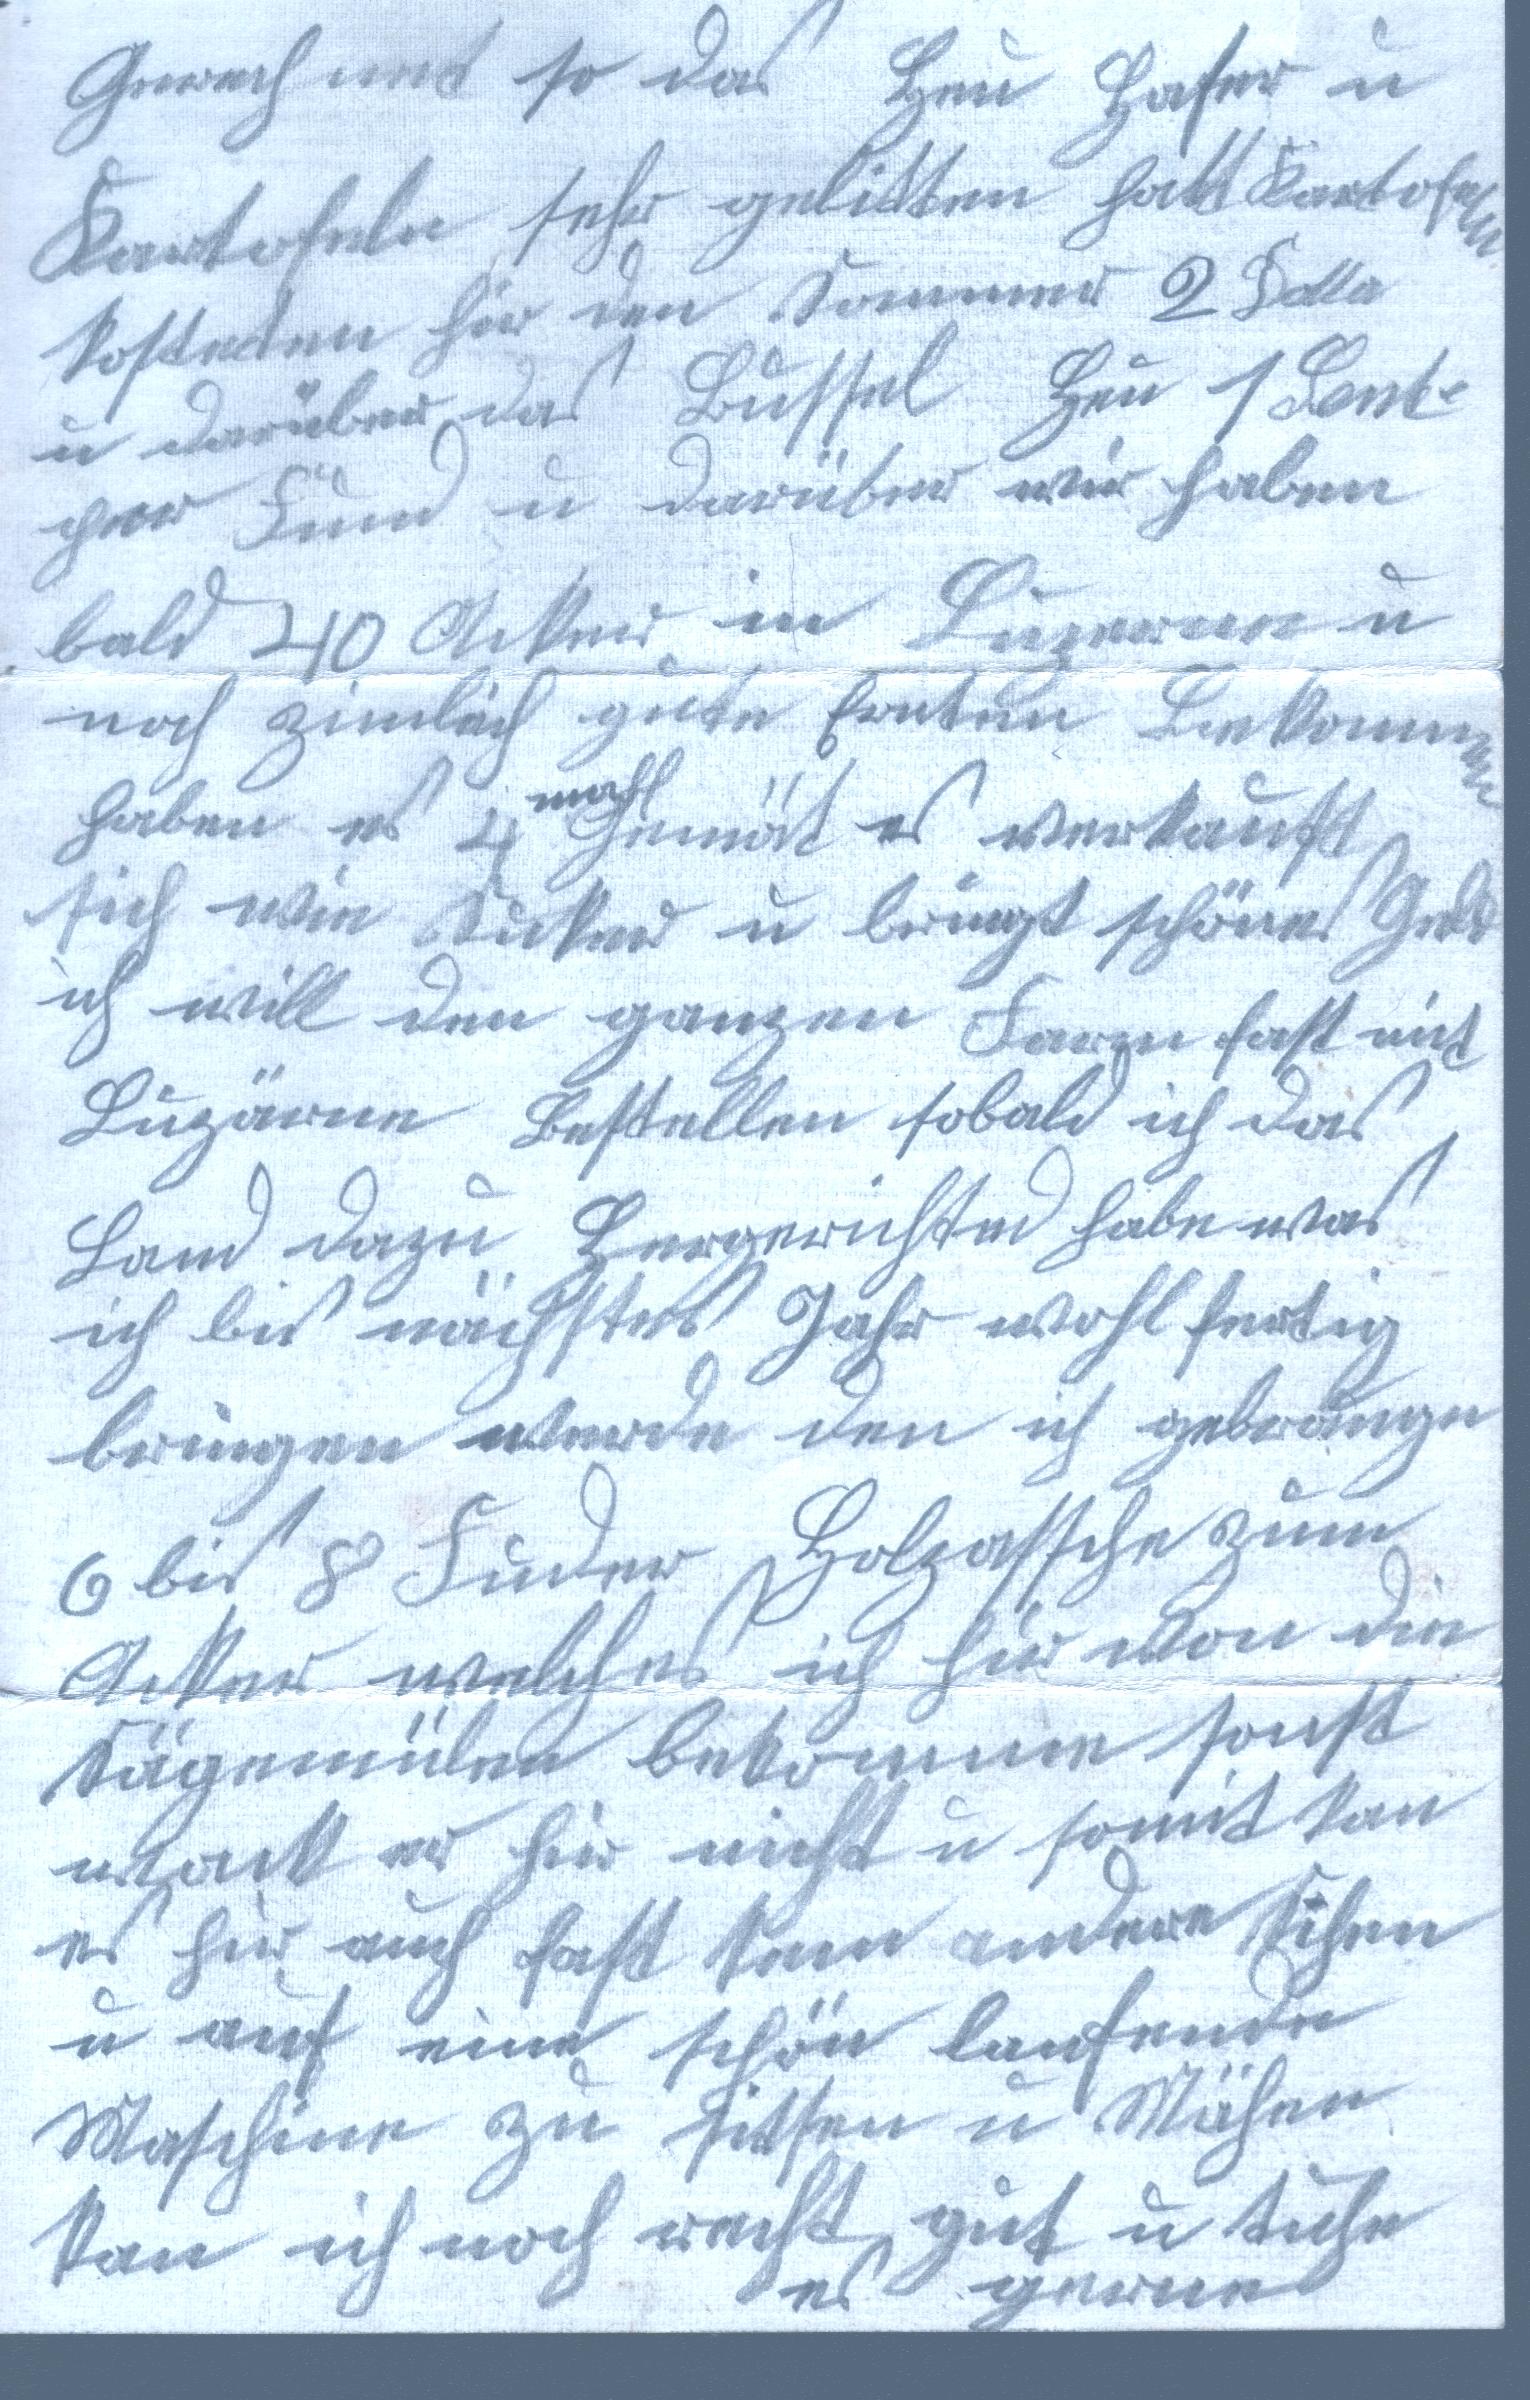 und so das Heu Hafer u
Kartofeln sehr gelitten hatt Kartofeln
kosteten hir den Sommer 2 Dolla
u darüber das Bussel Heu 1 Cent
per Fund u darüber wir haben
bald 40 Acker in Luzerne u
noch zimlich gute Ernten Bekommen
haben es 4 mahl Gemät es verkauft
sich wie Zuker u bringt schönes Geld
ich will den ganzen Farm fast mit
Luzärne Bestellen sobald ich das
Land dazu Hergerichted habe was
ich bis nächstes Jahr wohl fertig
bringen werde den ich gebrauge
6 bis 8 Fuder Holzassche zum
Acker welches ich hir von die
Sägemülen bekomme sonst
wackt er hir nicht u somit kan
es hir auch fast kein andere
u auf eine schön laufende
Maschine zu sitsen u Mähen
kan ich noch recht gut u tuhe
es gerne